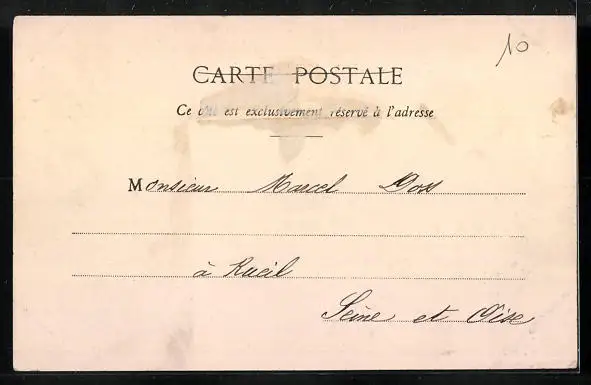 10
CARTE POSTALE
Ce côté est exclusivement réservé à l'adresse
Monsieur Marcel
à Rueil
Seine et Oise